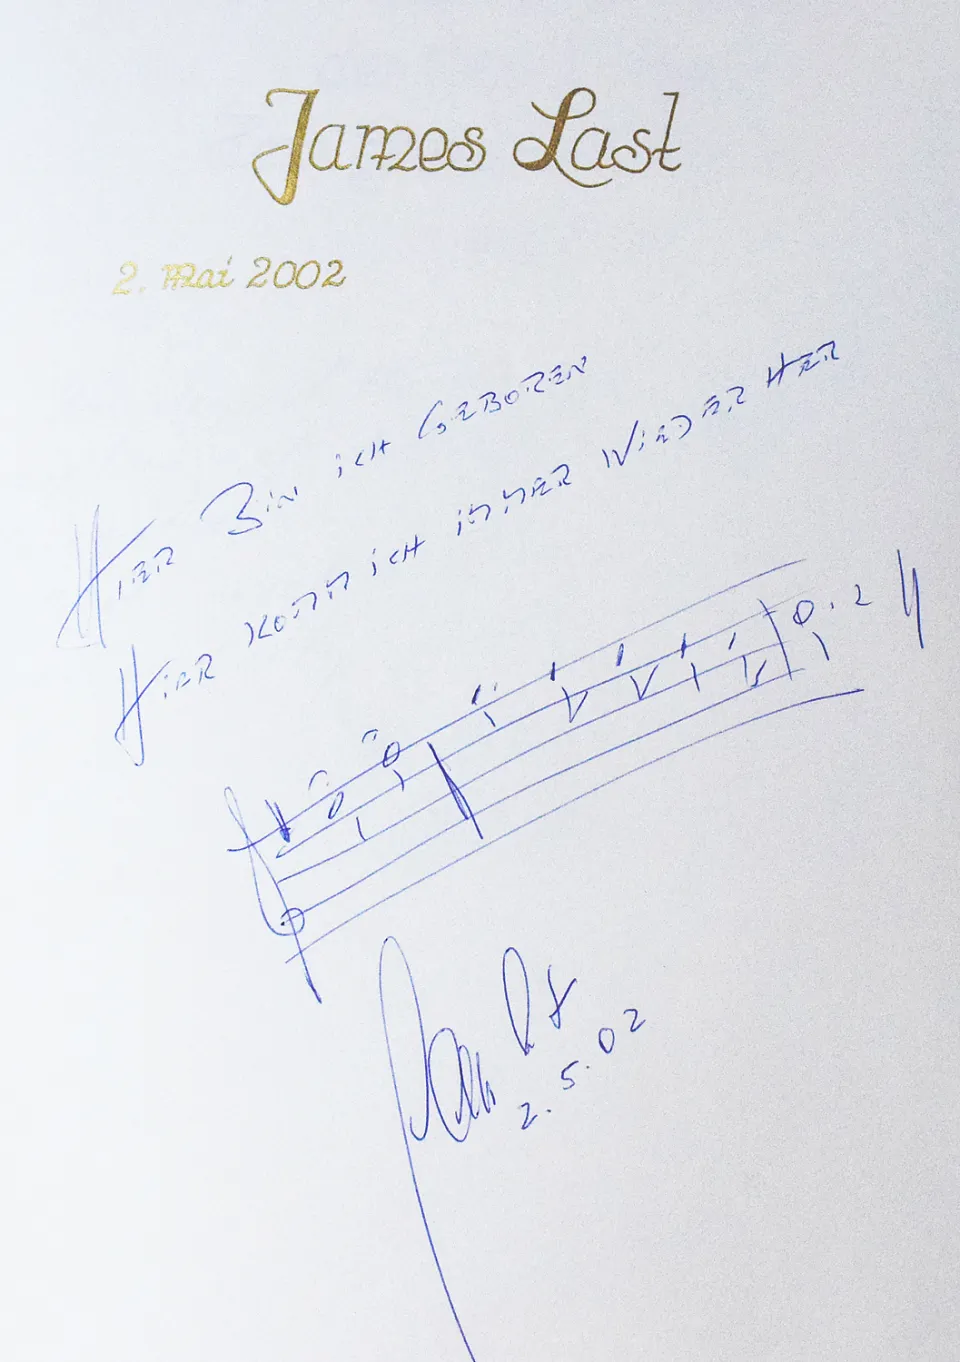 James Last
2. Mai 2002
HiER BiN iCH GEBOREN
HiER KOMM iCH iMMER WiEDER HER
2.5.02